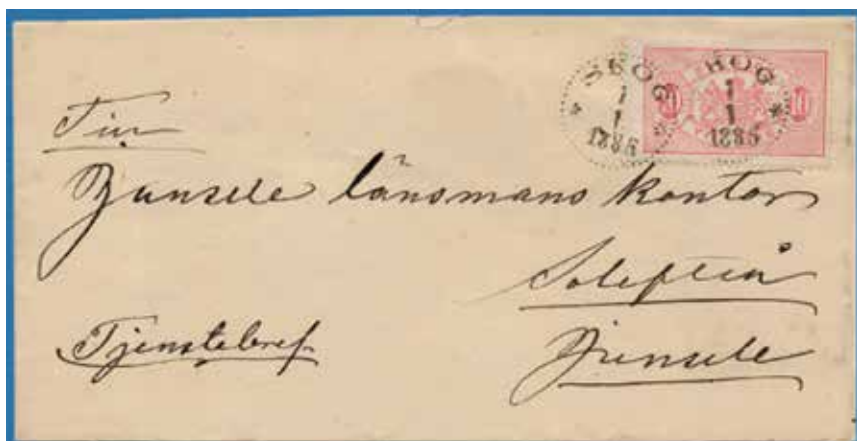 SKOG
1
1
1886
SKOG
1
1
1886
10
10
Till
Junsele länsmans kontor
Solefteå
Tjenstebref
Junsele